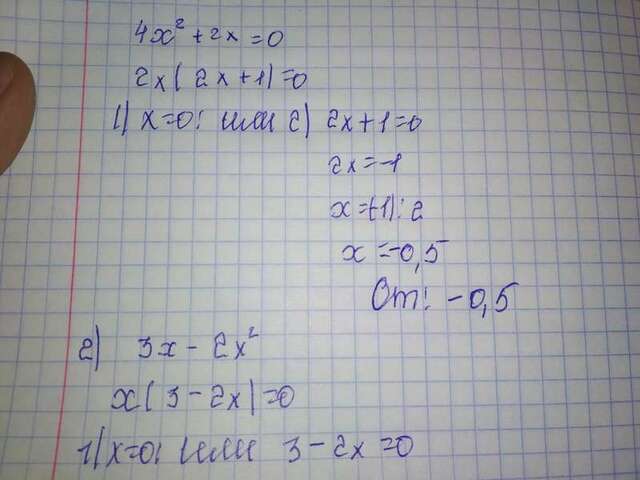 4x² + 2x = 0
2x( 2x + 1) = 0
1) x=0; или 2) 2x + 1 = 0
2x = -1
x = (-1) : 2
x = -0,5
От: -0,5
2) 3x - 2x²
x( 3 - 2x) = 0
1) x=0; или 3 - 2x = 0